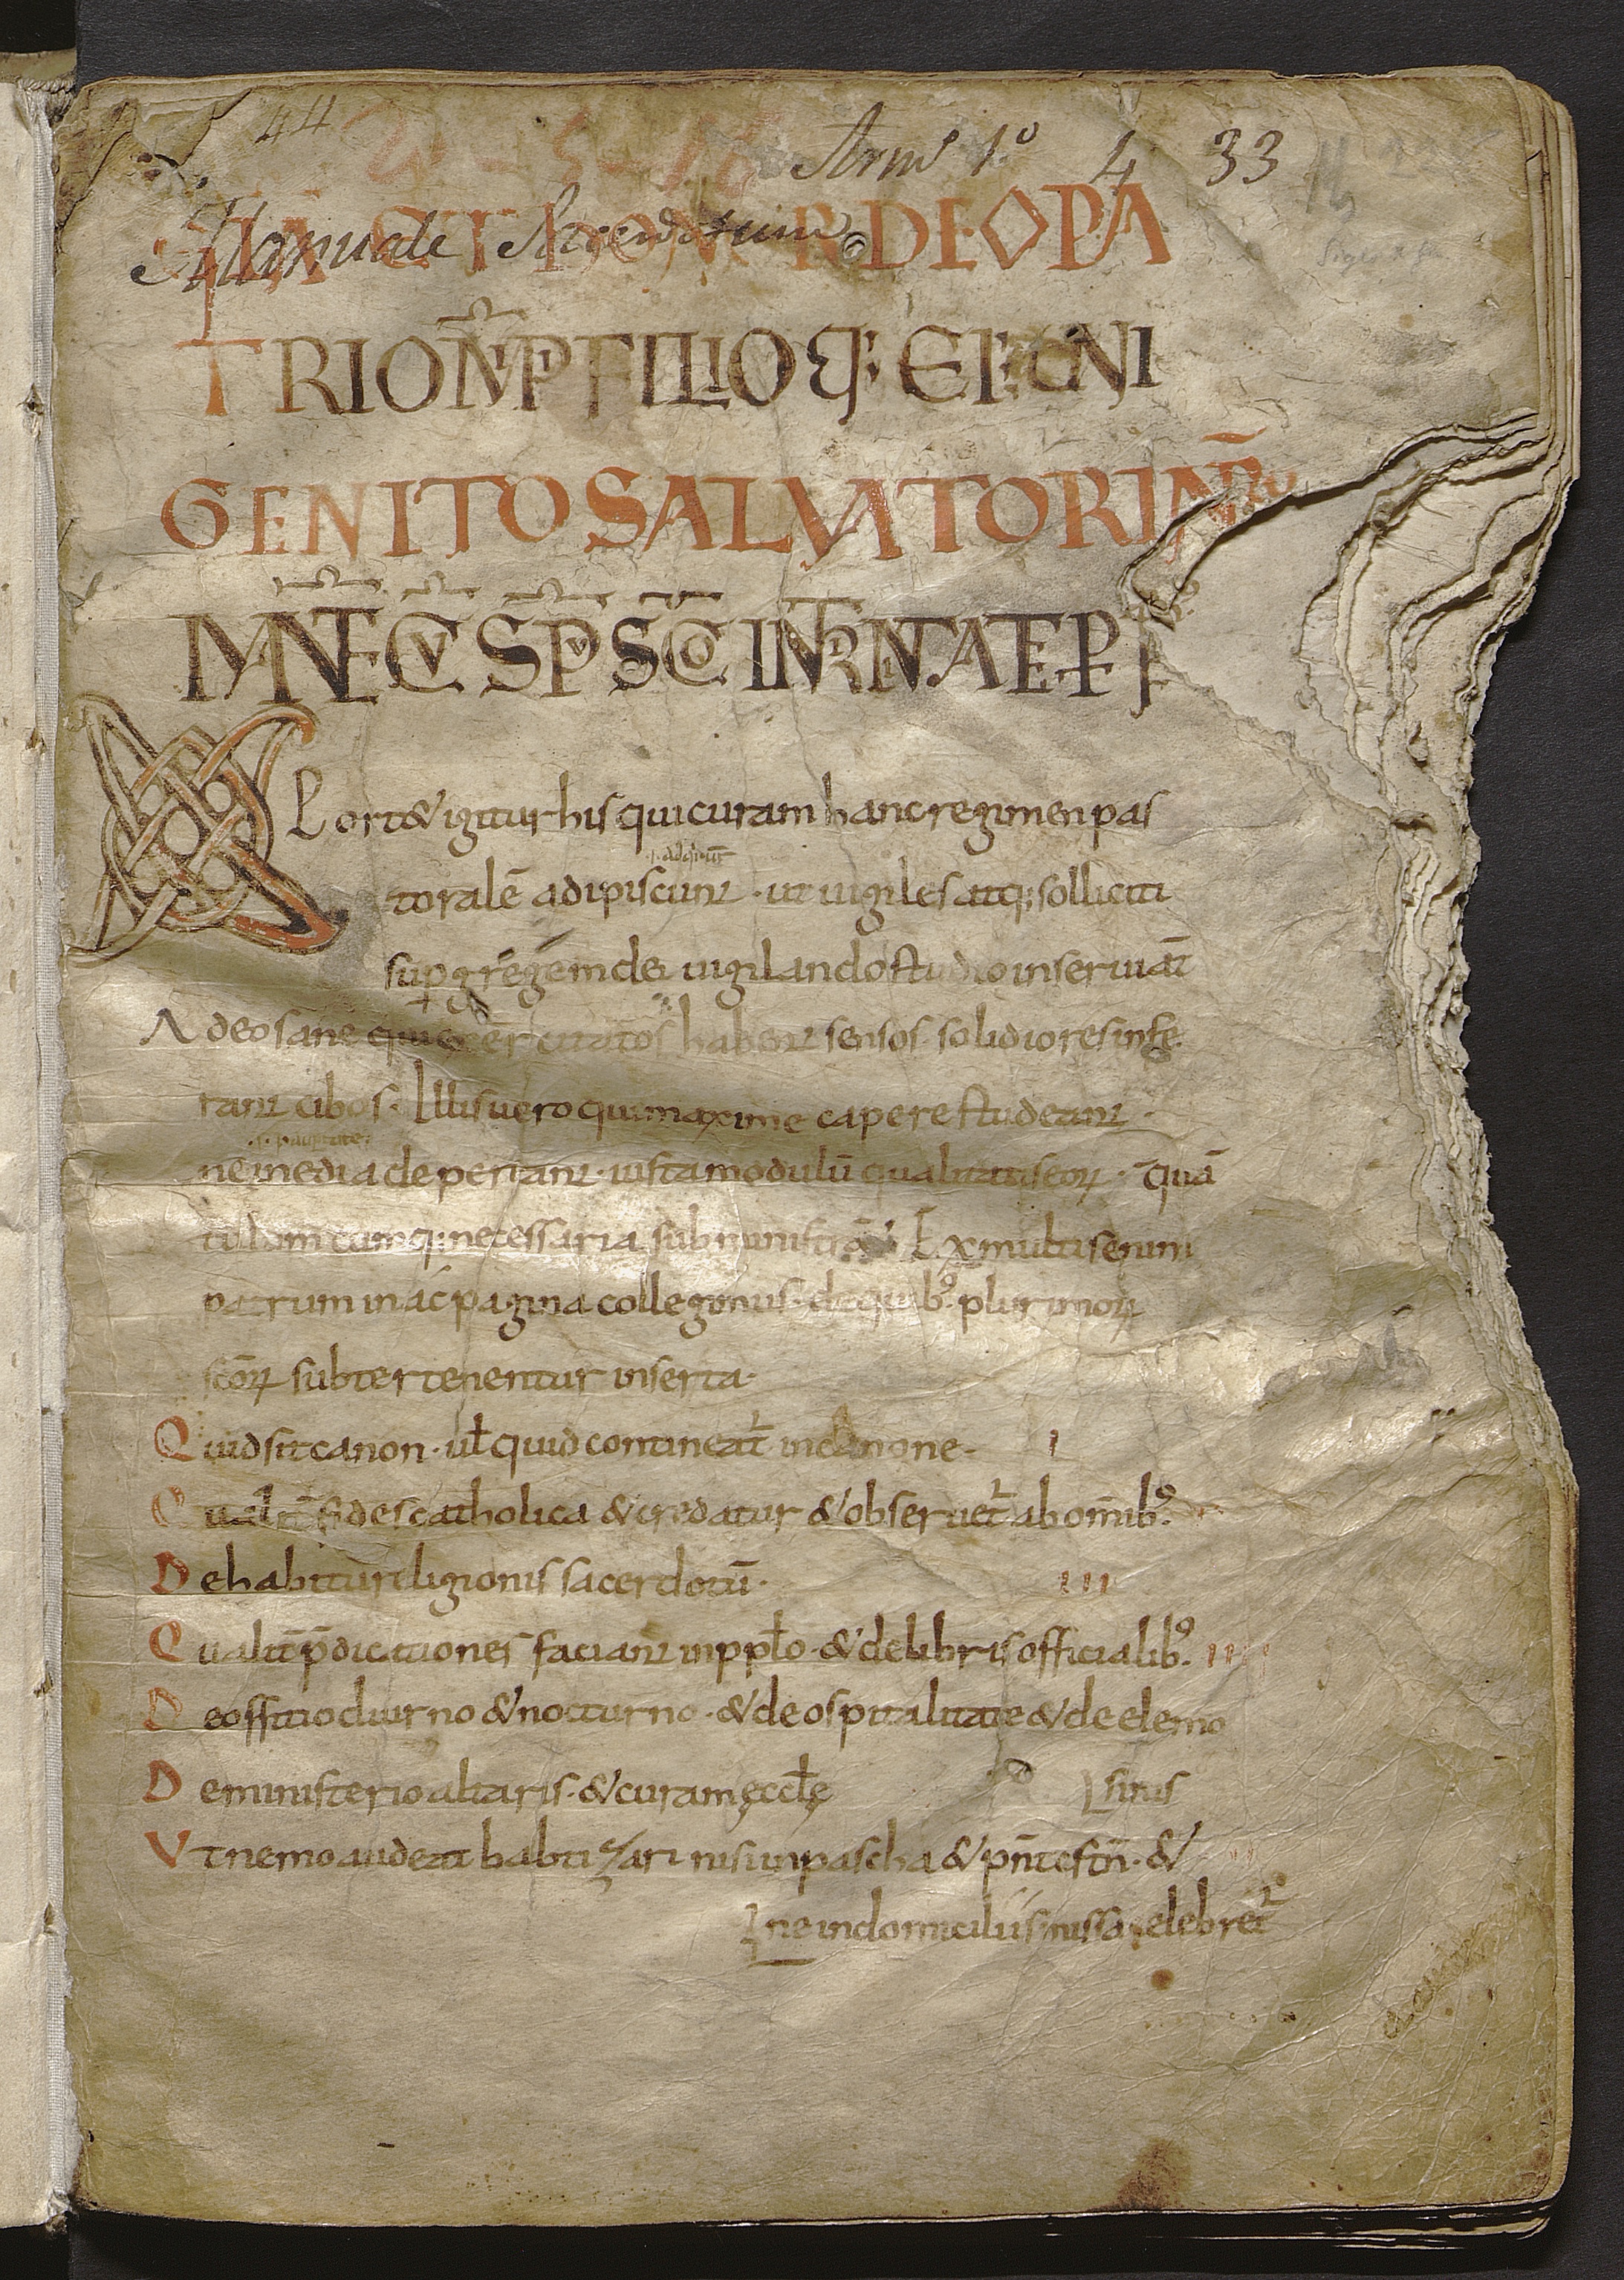 44
Arm° 1° 4 33
Manuale Sacerdotum
DEO PA
TRI OM̄P FILIOQ; EI; UNI
GENITO SALVATORI NR̄O
UNA CŪ SPŪ SCŌ IN TRINITATE PF
Oport& igitur his qui curam hanc regimen pas
toralē adipiscunt᷑ · ut uigiles atq; solliciti
sup gregem dei uigilando studio inseruiāt
Adeo sane qui exercitatos habent sensos solidiores inf&
rant᷑ cibos · Illis uero qui maxime capere studeant᷑ ·
ne inedia depereant᷑ · iusta modulū qualitatis eoꝝ · quā
tulamcumq; necessaria subministrā · Ex multis enim
patrum in ac pagina collegimus · de quib; plurimoꝝ
scōꝝ subter tenentur inserta ·
Quid sit canon · ut̄ quid contineat᷑ in canone · I
Qualit̄ fides catholica & credatur & obseruet᷑ ab omīb;
De habitu religionis sacerdotū · III
Qualit̄ p̄dicationes faciant᷑ in pplō · & de libris officialib; IIII
De offitio diurno & nocturno · & de ospitalitate & de elemo
De ministerio altaris · & curam ęcclę sinis
Ut nemo audeat babtizari nisi in pascha & pn̄tesn̄ · &
ne in domiciliis missa celebret᷑